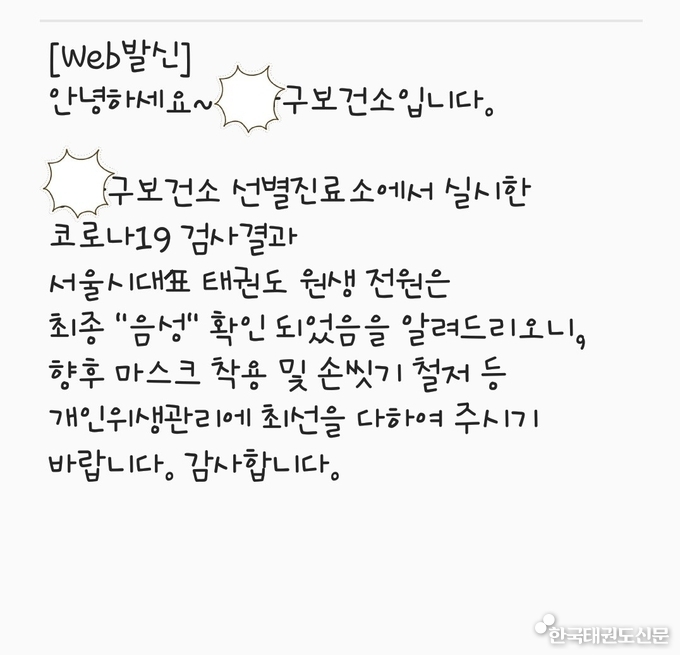 [Web발신]
안녕하세요~ 구보건소입니다.
구보건소 선별진료소에서 실시한
코로나19 검사결과
서울시대표 태권도 원생 전원은
최종 "음성" 확인 되었음을 알려드리오니,
향후 마스크 착용 및 손씻기 철저 등
개인위생관리에 최선을 다하여 주시기
바랍니다. 감사합니다.
한국태권도신문